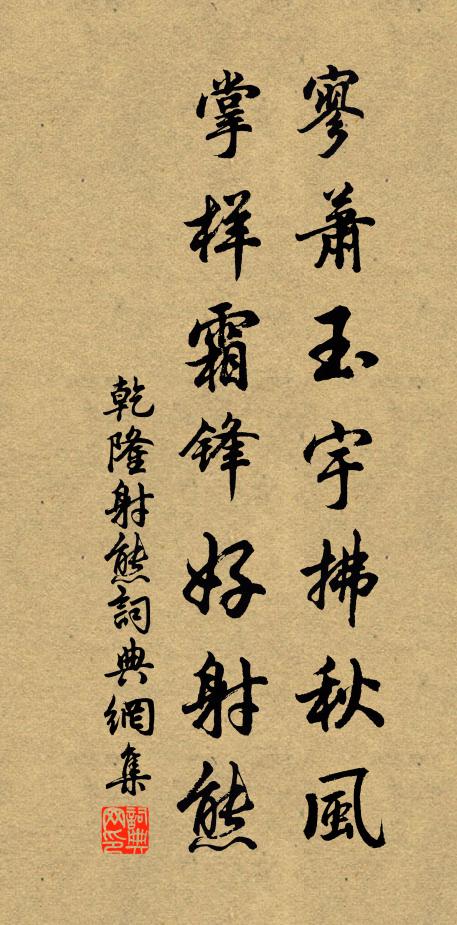 寥蕭玉宇拂秋風
掌样霜锋好射熊
乾隆射熊詞典網集
詞典
网印